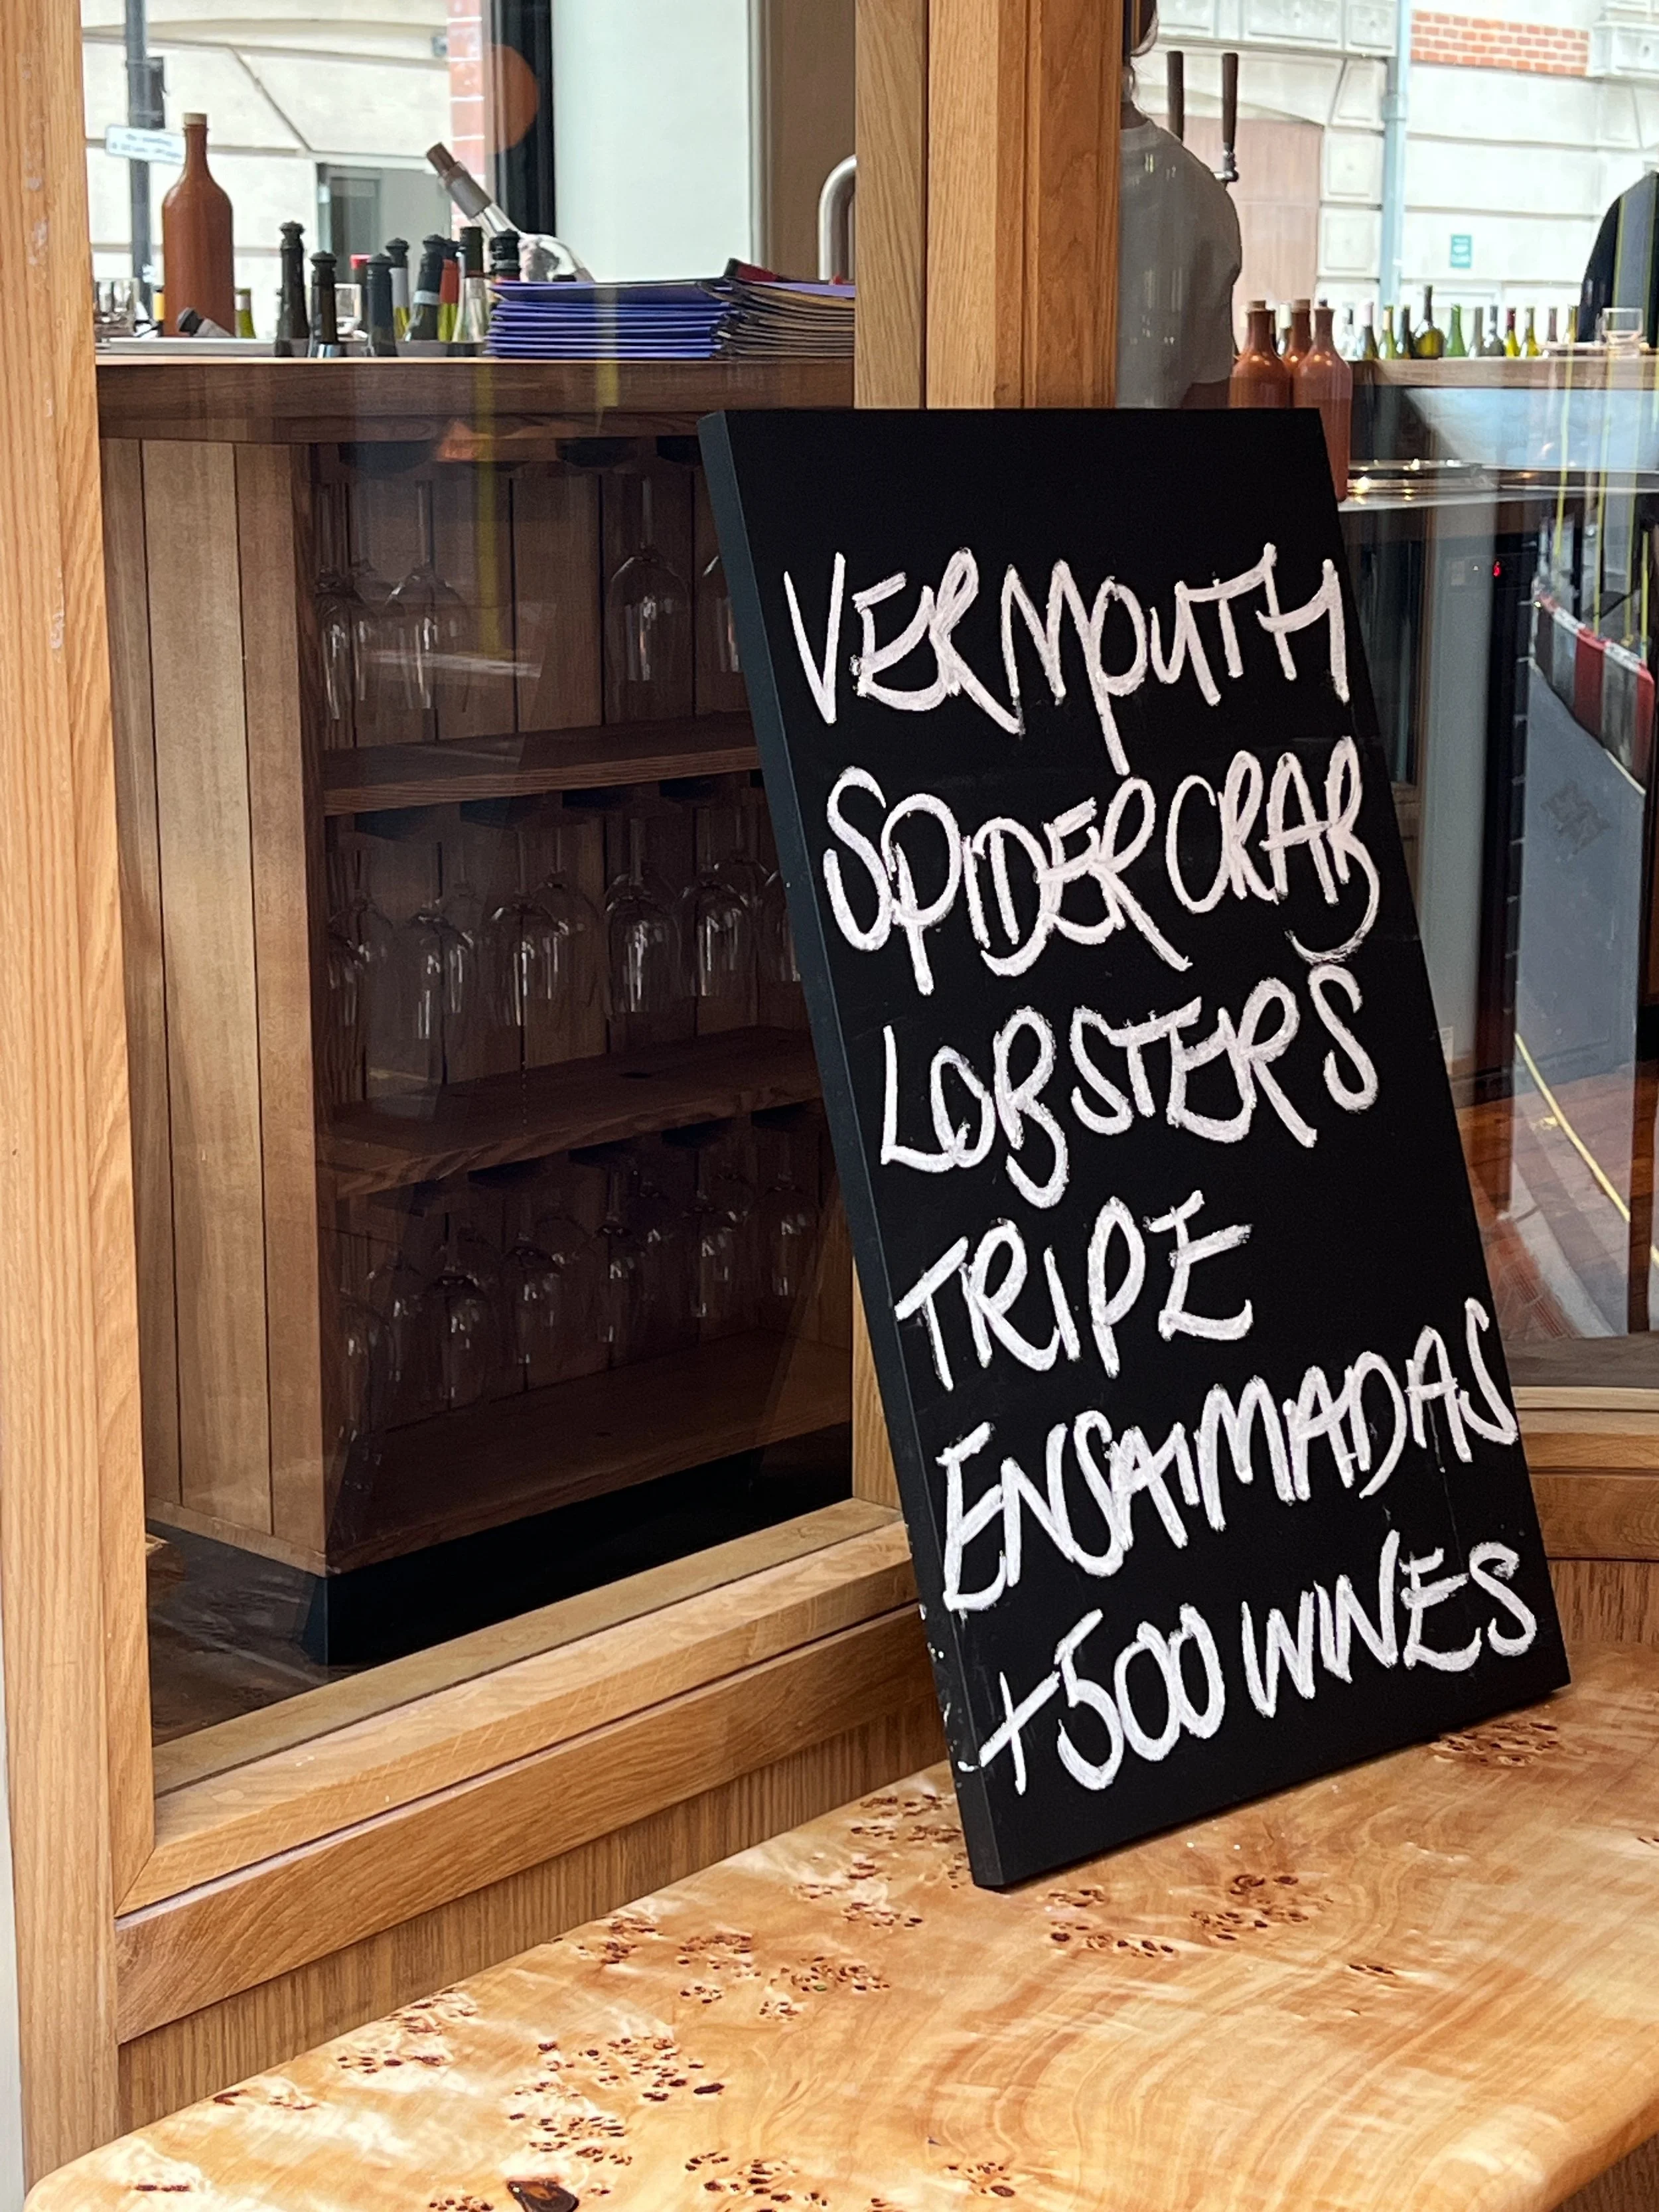 VERMOUTH
SPIDER CRAB
LOBSTERS
TRIPE
ENSAIMADAS
+500 WINES